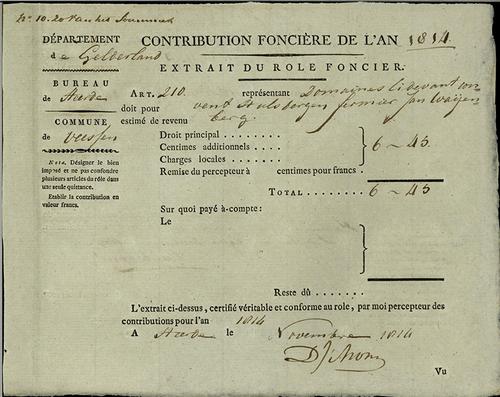 DÉPARTEMENT
de Gelderland
BUREAU
de Heerde
COMMUNE
de Veessen
Nota. Désigner le bien
imposé et ne pas confondre
plusieurs articles du rôle dans
une seule quittance.
Etablir la contribution en
valeur francs.
CONTRIBUTION FONCIÈRE DE L'AN 1814
EXTRAIT DU ROLE FONCIER.
ART. 210. représentant Domaines
doit pour
estimé de revenu
Droit principal . . . . . . . .
Centimes additionnels . . . . 6 ~ 45
Charges locales . . . . . . .
Remise du percepteur à centimes pour francs .
TOTAL . . . . . . . . 6 ~ 45
Sur quoi payé à-compte:
Le
Reste dû . . . . . . .
L'extrait ci-dessus, certifié véritable et conforme au role, par moi percepteur des
contributions pour l'an 1814
A Heerde le Novembre 1814
Vu